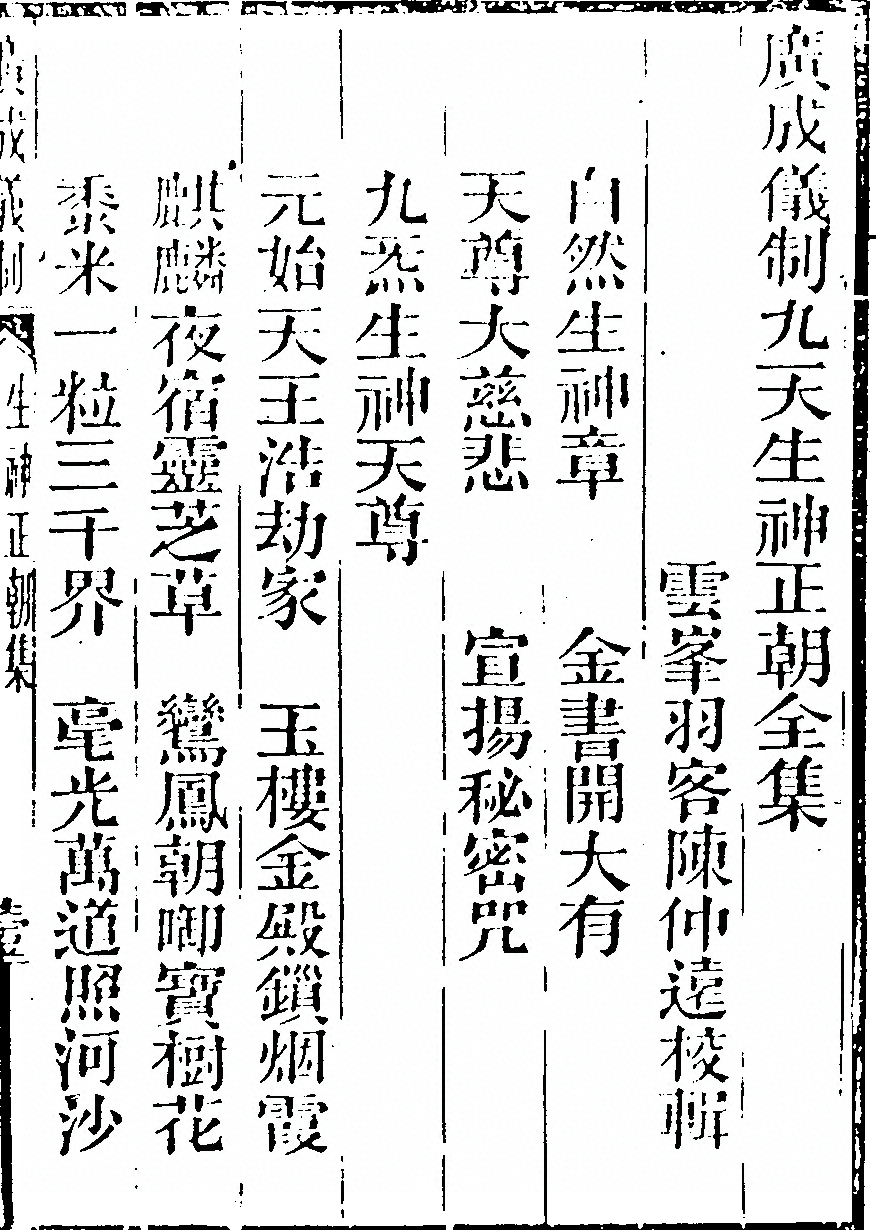 廣成儀制九天生神正朝全集
雲峯羽客陳仲遠校輯
自然生神章　金書開大有
天尊大慈悲　宣揚秘密咒
九炁生神天尊
元始天王浩劫家　玉樓金殿鎖烟霞
麒麟夜宿靈芝草　鸞鳳朝啣寶樹花
黍米一粒三千界　毫光萬道照河沙
廣成儀制　生神正朝集　壹